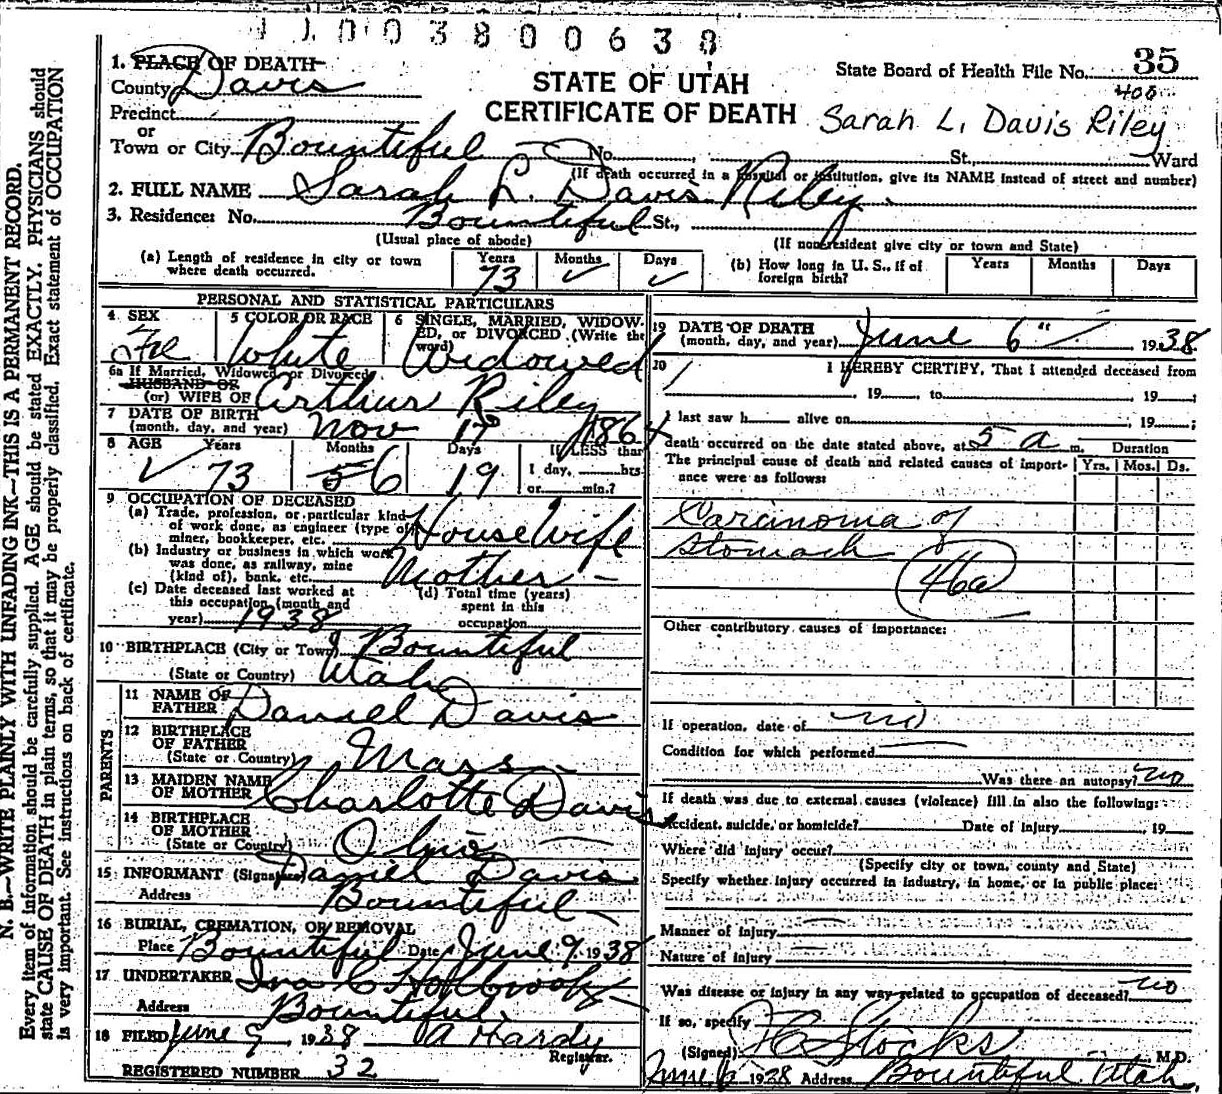 1 1 0 0 3 8 0 0 6 3 8
1. PLACE OF DEATH
County Davis
STATE OF UTAH
CERTIFICATE OF DEATH
State Board of Health File No. 35
400
Sarah L. Davis Riley
Precinct
or
Town or City Bountiful No. St., Ward
(If death occurred in a hospital or institution, give its NAME instead of street and number)
2. FULL NAME Sarah L. Davis Riley.
3. Residence: No. Bountiful St.,
(Usual place of abode) (If nonresident give city or town and State)
(a) Length of residence in city or town where death occurred. Years 73 Months ✓ Days ✓
(b) How long in U. S., if of foreign birth? Years Months Days
PERSONAL AND STATISTICAL PARTICULARS
4 SEX Fe
5 COLOR OR RACE White
6 SINGLE, MARRIED, WIDOWED, or DIVORCED (Write the word) Widowed
6a If Married, Widowed or Divorced
HUSBAND OF
(or) WIFE OF Arthur Riley
7 DATE OF BIRTH
(month, day, and year) Nov 17 1864
8 AGE Years 73 Months 5 6 Days 19 If LESS than
1 day, hrs.
or min.?
9 OCCUPATION OF DECEASED
(a) Trade, profession, or particular kind
of work done, as engineer (type of
miner, bookkeeper, etc. House Wife
(b) Industry or business in which work
was done, as railway, mine
(kind of), bank, etc. Mother
(c) Date deceased last worked at
this occupation (month and
year) 1938
(d) Total time (years)
spent in this
occupation
10 BIRTHPLACE (City or Town) Bountiful
(State or Country) Utah
PARENTS
11 NAME OF
FATHER Daniel Davis
12 BIRTHPLACE
OF FATHER
(State or Country) Mass
13 MAIDEN NAME
OF MOTHER Charlotte Davis
14 BIRTHPLACE
OF MOTHER
(State or Country) Ohio
15 INFORMANT (Signature) Daniel Davis
Address Bountiful
16 BURIAL, CREMATION, OR REMOVAL
Place Bountiful Date June 9, 1938
17 UNDERTAKER Holbrook
Address Bountiful
18 FILED June 9 1938 A Hardy
Registrar.
REGISTERED NUMBER 32
19 DATE OF DEATH
(month, day, and year) June 6" 1938
20 I HEREBY CERTIFY, That I attended deceased from
, 19 , to , 19 ;
I last saw h alive on , 19 ;
death occurred on the date stated above, at 5 a m.
The principal cause of death and related causes of importance were as follows:
Duration
Yrs. Mos. Ds.
Carcinoma of
Stomach
46a
Other contributory causes of importance:
If operation, date of no
Condition for which performed
Was there an autopsy? no
If death was due to external causes (violence) fill in also the following:
Accident, suicide, or homicide? Date of injury , 19
Where did injury occur?
(Specify city or town, county and State)
Specify whether injury occurred in industry, in home, or in public place:
Manner of injury
Nature of injury
Was disease or injury in any way related to occupation of deceased? no
If so, specify
(Signed) Stocks M.D.
June 6 1938 Address Bountiful Utah.
N. B.—WRITE PLAINLY WITH UNFADING INK—THIS IS A PERMANENT RECORD.
Every item of information should be carefully supplied. AGE should be stated EXACTLY. PHYSICIANS should
state CAUSE OF DEATH in plain terms, so that it may be properly classified. Exact statement of OCCUPATION
is very important. See instructions on back of certificate.